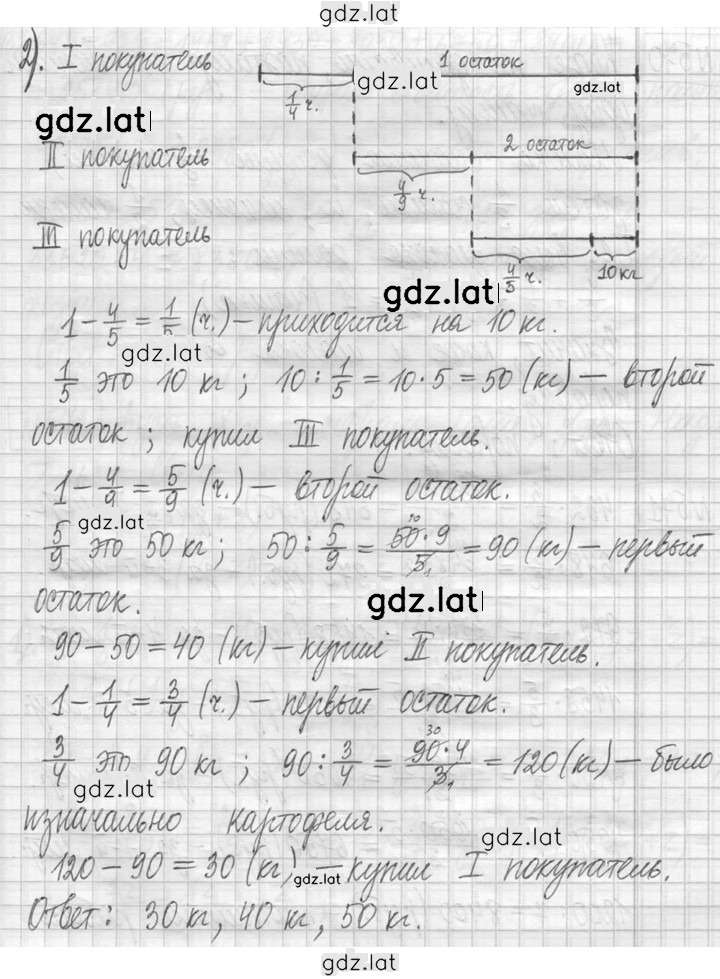 gdz.lat
2). I покупатель
1 остаток
gdz.lat
gdz.lat
1/4 ч.
gdz.lat
II покупатель
2 остаток
4/9 ч.
III покупатель
4/5 ч. 10 кг
gdz.lat
1 - 4/5 = 1/5 (ч.) - приходится на 10 кг.
gdz.lat
1/5 это 10 кг; 10 : 1/5 = 10 · 5 = 50 (кг) - второй
остаток; купил III покупатель.
1 - 4/9 = 5/9 (ч.) - второй остаток.
gdz.lat
5/9 это 50 кг; 50 : 5/9 = 50 10 · 9 / 5 1 = 90 (кг) - первый
остаток.
gdz.lat
90 - 50 = 40 (кг) - купил II покупатель.
1 - 1/4 = 3/4 (ч.) - первый остаток.
3/4 это 90 кг; 90 : 3/4 = 90 30 · 4 / 3 1 = 120 (кг) - было
gdz.lat
изначально картофеля.
gdz.lat
120 - 90 = 30 (кг) - купил I покупатель.
gdz.lat
Ответ: 30 кг, 40 кг, 50 кг.
gdz.lat